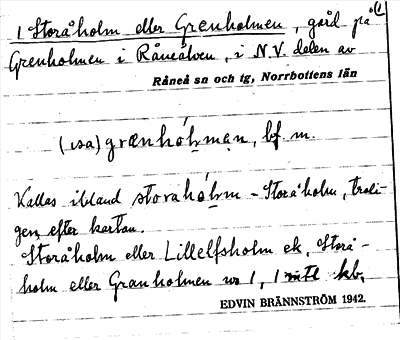 1 Storåholm eller Grenholmen, gård på (1
Grenholmen i Råneälven, i N.V. delen av
Råneå sn och tg, Norrbottens län
(ɩsa) grænhó̱ḷmạn, bf. m.
Kallas ibland storahó̱ḷm - Storåholm, troli-
gen efter kartan.
Storåholm eller Lillelfsholm ek, Storå-
holm eller Granholmen nr 1, 1 mtl kb,
EDVIN BRÄNNSTRÖM 1942.